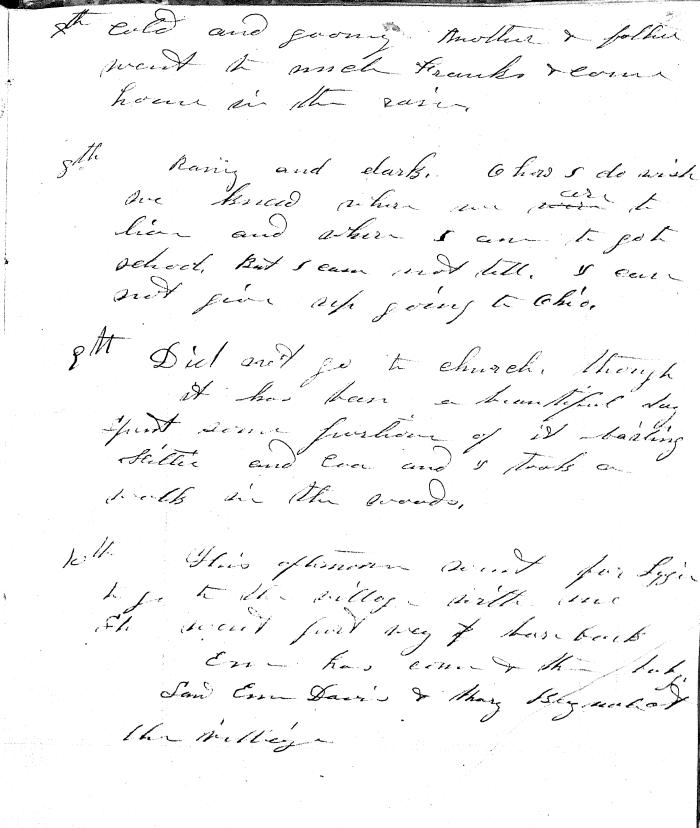 7th cold and goomy Mother & father
went to uncle Franks & come
home in the rain.
8th Rainy and dark. O how I do wish
we knew where we are to
live and where I am to go to
school. But I can not tell. I can
not give up going to Ohio.
9th Did not go to church. though
it has been a beautiful day
spent some portion of it
Hittie and Eva and I took a
walk in the woods.
10th This afternoon went for Lizzie
to go to the village with me
We went part way & has back
Em has come & the baby
Saw Em Davis & Mary at
the village